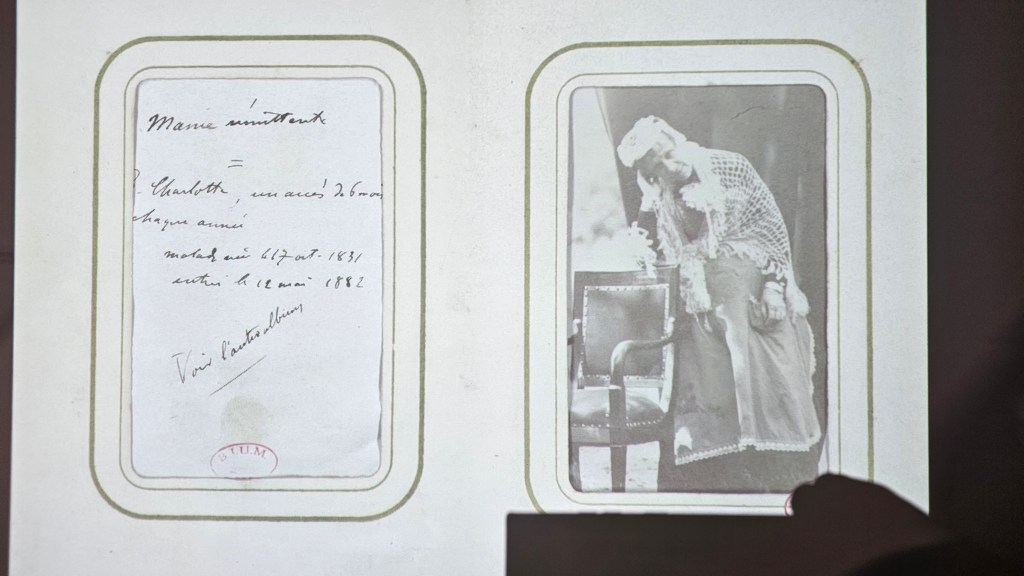 Manie rémittente
=
Charlotte, un accès de 6 mois
chaque année
malade née le 17 oct. 1831
entrée le 12 mai 1882
Voir l'autre album